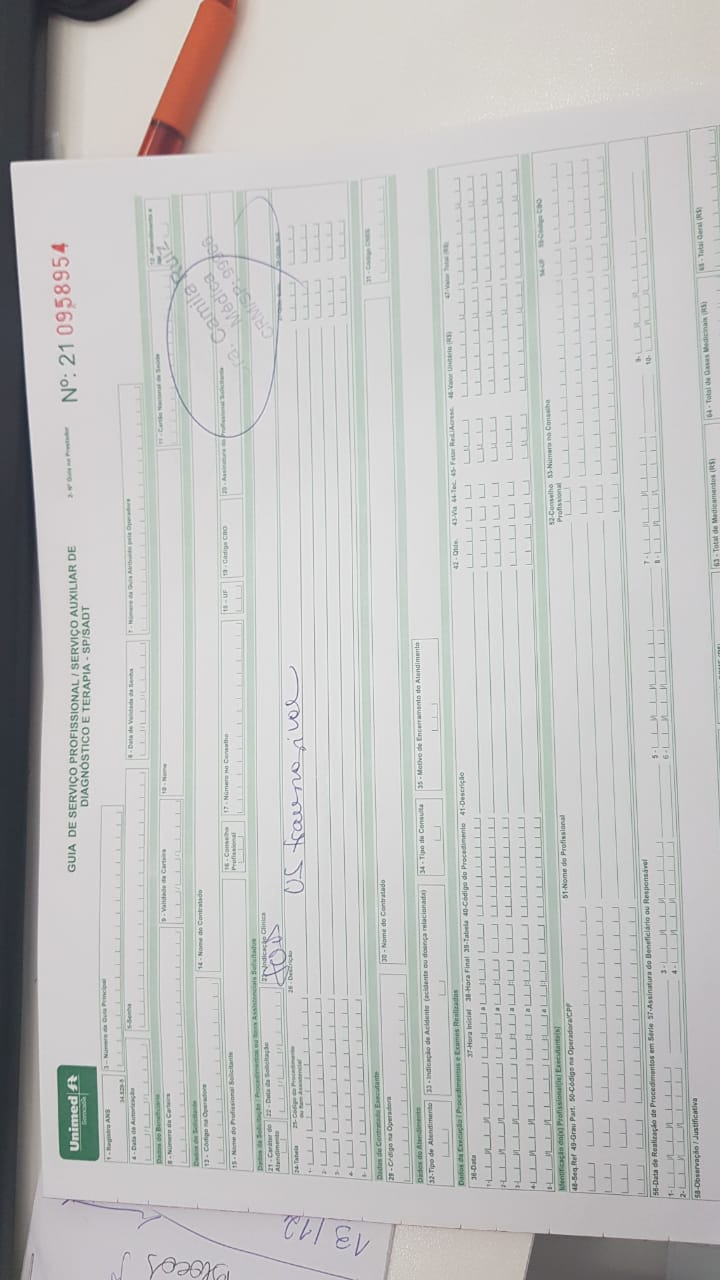 Unimed
GUIA DE SERVIÇO PROFISSIONAL / SERVIÇO AUXILIAR DE
DIAGNÓSTICO E TERAPIA - SP/SADT
2- Nº Guia no Prestador
Nº: 21 0958954
1 - Registro ANS
3 - Número da Guia Principal
4 - Data da Autorização
5-Senha
6 - Data de Validade da Senha
7 - Número da Guia Atribuído pela Operadora
Dados do Beneficiário
8 - Número da Carteira
9 - Validade da Carteira
10 - Nome
11 - Cartão Nacional de Saúde
Dados do Solicitante
13 - Código na Operadora
14 - Nome do Contratado
15 - Nome do Profissional Solicitante
16 - Conselho Profissional
17 - Número no Conselho
18 - UF
19 - Código CBO
20 - Assinatura do Profissional Solicitante
Camila Ruiz
Médica
Dados da Solicitação / Procedimentos ou Itens Assistenciais Solicitados
21 - Caráter do Atendimento
22 - Data da Solicitação
23 - Indicação Clínica
24-Tabela
25- Código do Procedimento ou Item Assistencial
26 - Descrição
US transvaginal
1-
2-
3-
4-
5-
Dados do Contratado Executante
29 - Código na Operadora
30 - Nome do Contratado
31 - Código CNES
Dados do Atendimento
32-Tipo de Atendimento
33 - Indicação de Acidente (acidente ou doença relacionada)
34 - Tipo de Consulta
35 - Motivo de Encerramento do Atendimento
Dados da Execução / Procedimentos e Exames Realizados
36-Data
37-Hora Inicial
38-Hora Final
39-Tabela
40-Código do Procedimento
41-Descrição
42 - Qtde.
43-Via
44-Tec.
45- Fator Red./Acresc.
46-Valor Unitário (R$)
47-Valor Total (R$)
Identificação do(s) Profissional(is) Executante(s)
48-Seq.Ref
49-Grau Part.
50-Código na Operadora/CPF
51-Nome do Profissional
52-Conselho Profissional
53-Número no Conselho
54-UF
55-Código CBO
56-Data de Realização de Procedimentos em Série
57-Assinatura do Beneficiário ou Responsável
1-
2-
3 -
4 -
5 -
6 -
7 -
8 -
9-
10-
58-Observação / Justificativa
63 - Total de Medicamentos (R$)
64 - Total de Gases Medicinais (R$)
65 - Total Geral (R$)
13/12